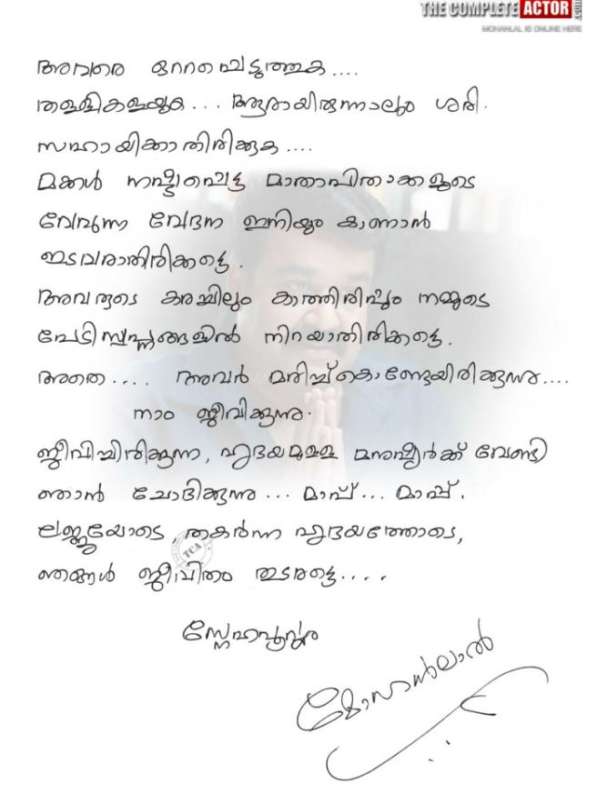 THE COMPLETE ACTOR
MOHANLAL IS ONLINE HERE
അവരെ ഒറ്റപ്പെടുത്തുക....
തള്ളികളയുക... ആരായിരുന്നാലും ശരി.
സഹായിക്കാതിരിക്കുക....
മക്കൾ നഷ്ടപ്പെട്ട മാതാപിതാക്കളുടെ
വേവുന്ന വേദന ഇനിയും കാണാൻ
ഇടവരാതിരിക്കട്ടെ.
അവരുടെ കരച്ചിലും കാത്തിരിപ്പും നമ്മുടെ
പേടിസ്വപ്നങ്ങളിൽ നിറയാതിരിക്കട്ടെ.
അതെ.... അവർ മരിച്ച്കൊണ്ടേയിരിക്കുന്നു....
നാം ജീവിക്കുന്നു.
ജീവിച്ചിരിക്കുന്ന, ഹൃദയമുള്ള മനുഷ്യർക്ക് വേണ്ടി
ഞാൻ ചോദിക്കുന്നു... മാപ്പ്... മാപ്പ്.
ലജ്ജയോടെ, തകർന്ന ഹൃദയത്തോടെ,
ഞങ്ങൾ ജീവിതം തുടരട്ടെ....
TCA
സ്നേഹപൂർവ്വം
മോഹൻലാൽ